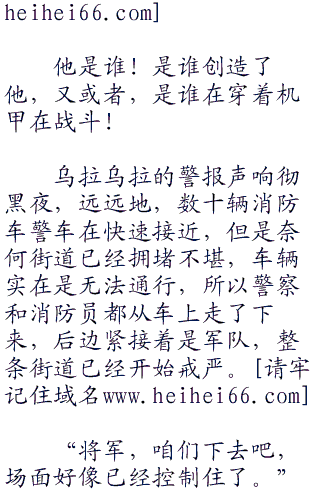 heihei66.com]
他是谁！是谁创造了
他，又或者，是谁在穿着机
甲在战斗！
乌拉乌拉的警报声响彻
黑夜，远远地，数十辆消防
车警车在快速接近，但是奈
何街道已经拥堵不堪，车辆
实在是无法通行，所以警察
和消防员都从车上走了下
来，后边紧接着是军队，整
条街道已经开始戒严。[请牢
记住域名www.heihei66.com]
“将军，咱们下去吧，
场面好像已经控制住了。”